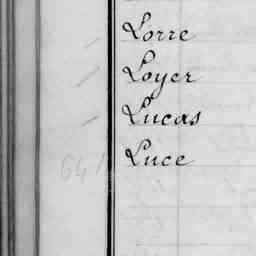 Lorre
Loyer
Lucas
Luce
641